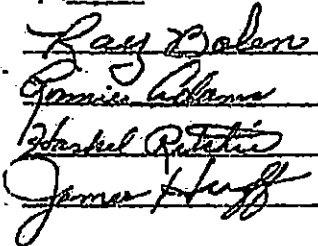 Ray Bolen
Ronnie Adams
Haskel Ritchie
James Huff